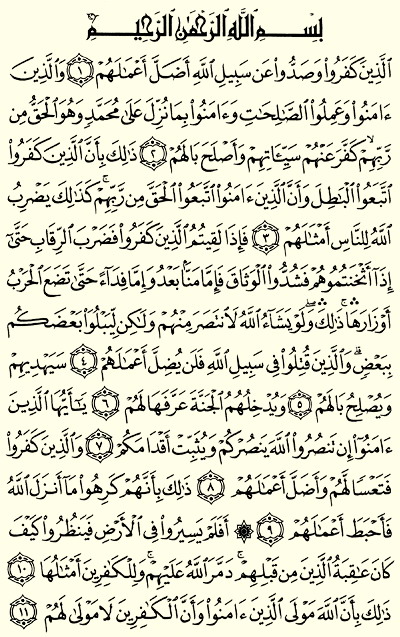 بِسْمِ ٱللَّهِ ٱلرَّحْمَٰنِ ٱلرَّحِيمِ
ٱلَّذِينَ كَفَرُوا۟ وَصَدُّوا۟ عَن سَبِيلِ ٱللَّهِ أَضَلَّ أَعْمَٰلَهُمْ ١ وَٱلَّذِينَ
ءَامَنُوا۟ وَعَمِلُوا۟ ٱلصَّٰلِحَٰتِ وَءَامَنُوا۟ بِمَا نُزِّلَ عَلَىٰ مُحَمَّدٍ وَهُوَ ٱلْحَقُّ مِن
رَّبِّهِمْ ۙ كَفَّرَ عَنْهُمْ سَيِّـَٔاتِهِمْ وَأَصْلَحَ بَالَهُمْ ٢ ذَٰلِكَ بِأَنَّ ٱلَّذِينَ كَفَرُوا۟
ٱتَّبَعُوا۟ ٱلْبَٰطِلَ وَأَنَّ ٱلَّذِينَ ءَامَنُوا۟ ٱتَّبَعُوا۟ ٱلْحَقَّ مِن رَّبِّهِمْ ۚ كَذَٰلِكَ يَضْرِبُ
ٱللَّهُ لِلنَّاسِ أَمْثَٰلَهُمْ ٣ فَإِذَا لَقِيتُمُ ٱلَّذِينَ كَفَرُوا۟ فَضَرْبَ ٱلرِّقَابِ حَتَّىٰٓ
إِذَآ أَثْخَنتُمُوهُمْ فَشُدُّوا۟ ٱلْوَثَاقَ فَإِمَّا مَنًّۢا بَعْدُ وَإِمَّا فِدَآءً حَتَّىٰ تَضَعَ ٱلْحَرْبُ
أَوْزَارَهَا ۚ ذَٰلِكَ ۖ وَلَوْ يَشَآءُ ٱللَّهُ لَٱنتَصَرَ مِنْهُمْ وَلَٰكِن لِّيَبْلُوَا۟ بَعْضَكُم
بِبَعْضٍ ۗ وَٱلَّذِينَ قُتِلُوا۟ فِى سَبِيلِ ٱللَّهِ فَلَن يُضِلَّ أَعْمَٰلَهُمْ ٤ سَيَهْدِيهِمْ
وَيُصْلِحُ بَالَهُمْ ٥ وَيُدْخِلُهُمُ ٱلْجَنَّةَ عَرَّفَهَا لَهُمْ ٦ يَٰٓأَيُّهَا ٱلَّذِينَ
ءَامَنُوٓا۟ إِن تَنصُرُوا۟ ٱللَّهَ يَنصُرْكُمْ وَيُثَبِّتْ أَقْدَامَكُمْ ٧ وَٱلَّذِينَ كَفَرُوا۟
فَتَعْسًا لَّهُمْ وَأَضَلَّ أَعْمَٰلَهُمْ ٨ ذَٰلِكَ بِأَنَّهُمْ كَرِهُوا۟ مَآ أَنزَلَ ٱللَّهُ
فَأَحْبَطَ أَعْمَٰلَهُمْ ٩ ۞ أَفَلَمْ يَسِيرُوا۟ فِى ٱلْأَرْضِ فَيَنظُرُوا۟ كَيْفَ
كَانَ عَٰقِبَةُ ٱلَّذِينَ مِن قَبْلِهِمْ ۚ دَمَّرَ ٱللَّهُ عَلَيْهِمْ ۖ وَلِلْكَٰفِرِينَ أَمْثَٰلُهَا ١٠
ذَٰلِكَ بِأَنَّ ٱللَّهَ مَوْلَى ٱلَّذِينَ ءَامَنُوا۟ وَأَنَّ ٱلْكَٰفِرِينَ لَا مَوْلَىٰ لَهُمْ ١١